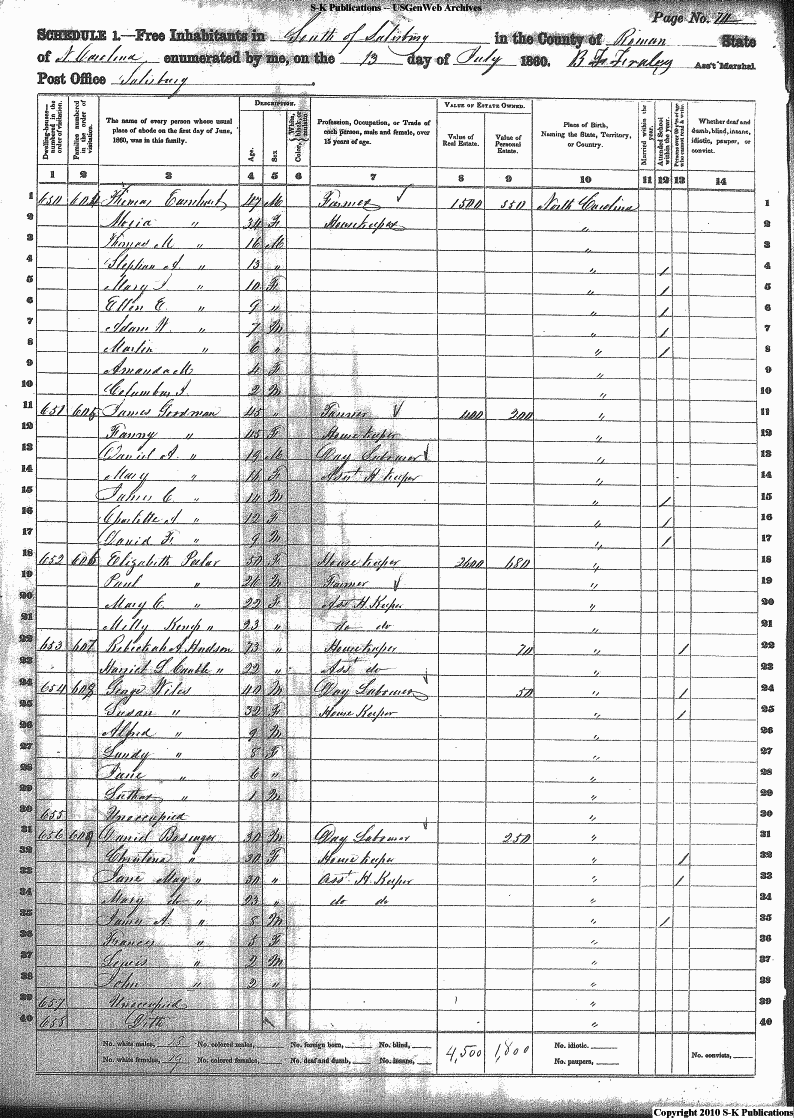 S-K Publications – USGenWeb Archives
Page No. 74
SCHEDULE 1.—Free Inhabitants in South of Salisbury in the County of Rowan State
of N. Carolina enumerated by me, on the 13 day of July 1860. Ass't Marshal.
Post Office Salisbury
DESCRIPTION. VALUE OF ESTATE OWNED.
Dwelling-houses—numbered in the order of visitation. Families numbered in the order of visitation. The name of every person whose usual place of abode on the first day of June, 1860, was in this family. Age. Sex. Color, White, black, or mulatto. Profession, Occupation, or Trade of each person, male and female, over 15 years of age. Value of Real Estate. Value of Personal Estate. Place of Birth, Naming the State, Territory, or Country. Married within the year. Attended School within the year. Persons over 20 y'rs of age who cannot read & write. Whether deaf and dumb, blind, insane, idiotic, pauper, or convict.
1 2 3 4 5 6 7 8 9 10 11 12 13 14
1 650 604 Thomas Earnhart 47 M Farmer 1500 550 North Carolina 1
2 " 34 F Housekeeper " 2
3 Thomas M. " 16 M " 3
4 Stephen A. " 13 " " / 4
5 Mary " 10 F " / 5
6 Ellen E. " 9 " " / 6
7 Adam W. " 7 M " / 7
8 Martin " 6 " " / 8
9 Amanda M 4 F " 9
10 Columbus 2 M " 10
11 651 605 James Goodman 45 " Farmer 400 200 " 11
12 Fanny " 45 F House Keeper " 12
13 Daniel A. " 19 M Day Labourer " 13
14 Mary " 16 F Ass't H Keeper " 14
15 James C. " 14 M " / 15
16 Charlotte A " 12 F " / 16
17 David F. " 9 M " / 17
18 652 606 Elizabeth Peeler 50 F House keeper 2600 680 " 18
19 Paul " 26 M Farmer " 19
20 Mary C. " 22 F Ass H. Keeper " 20
21 Milly " 23 " do do " 21
22 653 607 Rebeckah A. Hudson 73 " House keeper 70 " / 22
23 Harriet L. Cauble " 22 " Ass't do " 23
24 654 608 George Wiles 40 M Day Labourer 50 " / 24
25 Susan " 32 F House Keeper " / 25
26 Alfred " 9 M " 26
27 Lundy " 8 F " 27
28 Jane " 6 " " 28
29 Luther " 1 M " 29
30 655 Unoccupied " 30
31 656 609 Daniel Basinger 30 M Day Labourer 250 " 31
32 Christena " 30 F House keeper " / 32
33 Jane May " 30 " Ass't H. Keeper " / 33
34 Mary do " 23 " do do " 34
35 James A. " 8 M " / 35
36 Frances " 5 F " 36
37 Lewis " 2 M " 37
38 John " 2 " " 38
39 657 Unoccupied " 39
40 658 Ditto " 40
No. white males, No. colored males, No. foreign born, No. blind, 4,500 1,800 No. idiotic,
No. white females, 19 No. colored females, No. deaf and dumb, No. insane, No. paupers, No. convicts,
Copyright 2010 S-K Publications